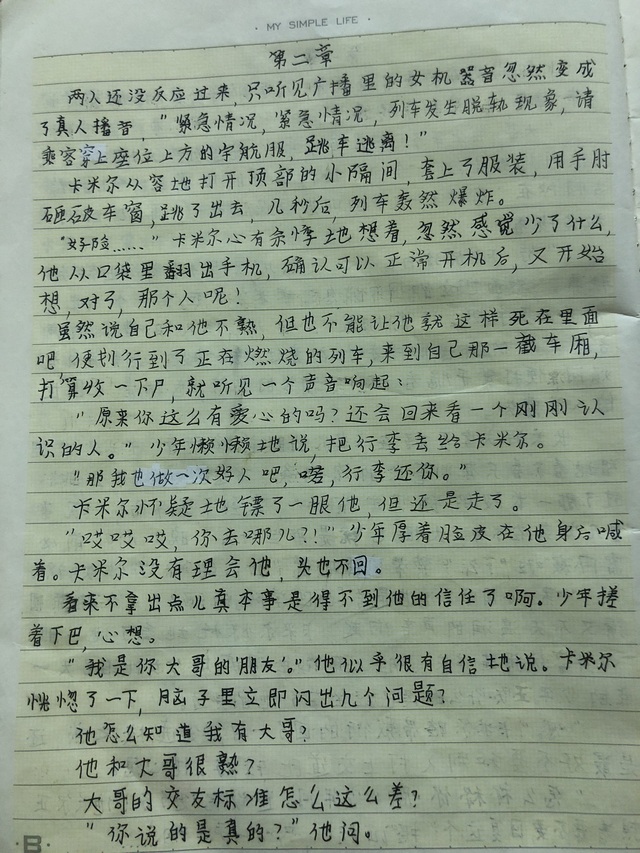 · MY SIMPLE LIFE ·
第二章
两人还没反应过来,只听见广播里的女机器音忽然变成
了真人播音,"紧急情况,紧急情况,列车发生脱轨现象,请
乘客穿上座位上方的宇航服,跳车逃离!"
卡米尔从容地打开顶部的小隔间,套上了服装,用手肘
砸破车窗,跳了出去,几秒后,列车轰然爆炸。
"好险……"卡米尔心有余悸地想着,忽然感觉少了什么,
他从口袋里翻出手机,确认可以正常开机后,又开始
想,对了,那个人呢!
虽然说自己和他不熟,但也不能让他就这样死在里面
吧,便划行到了正在燃烧的列车,来到自己那一截车厢,
打算收一下尸,就听见一个声音响起:
"原来你这么有爱心的吗?还会回来看一个刚刚认
识的人。"少年懒懒地说,把行李丢给卡米尔。
"那我也做一次好人吧,喏,行李还你。"
卡米尔怀疑地镖了一眼他,但还是走了。
"哎哎哎,你去哪儿?!"少年厚着脸皮在他身后喊
着。卡米尔没有理会他,头也不回。
看来不拿出点儿真本事是得不到他的信任了啊。少年搓
着下巴,心想。
"我是你大哥的'朋友'。"他似乎很有自信地说。卡米尔
恍惚了一下,脑子里立即闪出几个问题?
他怎么知道我有大哥?
他和大哥很熟?
大哥的交友标准怎么这么差?
"你说的是真的?"他问。
B